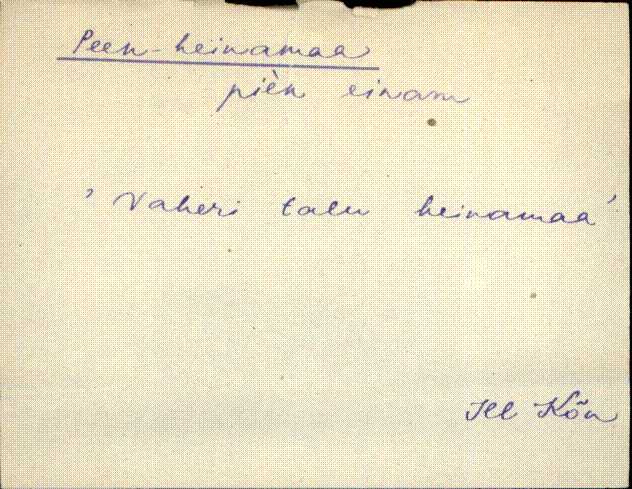 Peen-heinamaa
pièn einam
'Vaheri talu heinamaa'
Hll Kõn